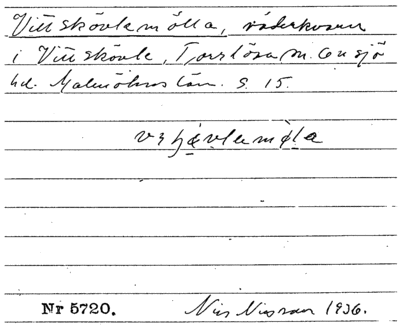 Vittskövlemölla, väderkvarn
i Vittskövle, Torrlösa sn. Onsjö
hd. Malmöhus län. S. 15.
Nr 5720. Nils Nilsson 1936.